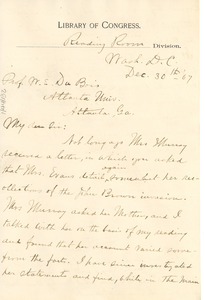 LIBRARY OF CONGRESS.
Reading Room
Division.
Wash. D.C.
Dec. 30th/07
Prof. W. E. Du Bois
Atlanta Univ.
Atlanta, Ga
My dear Sir:
Not long ago Mrs. Murray
received a letter, in which you asked
that Mrs. Evans detail, somewhat her again
recollections of the John Brown invasion.
Mrs Murray asked her Mother, and I
talked with her on the basis of my reading
and found that her account varied some
from the facts. I have since investigated
her statements and find, while in the main